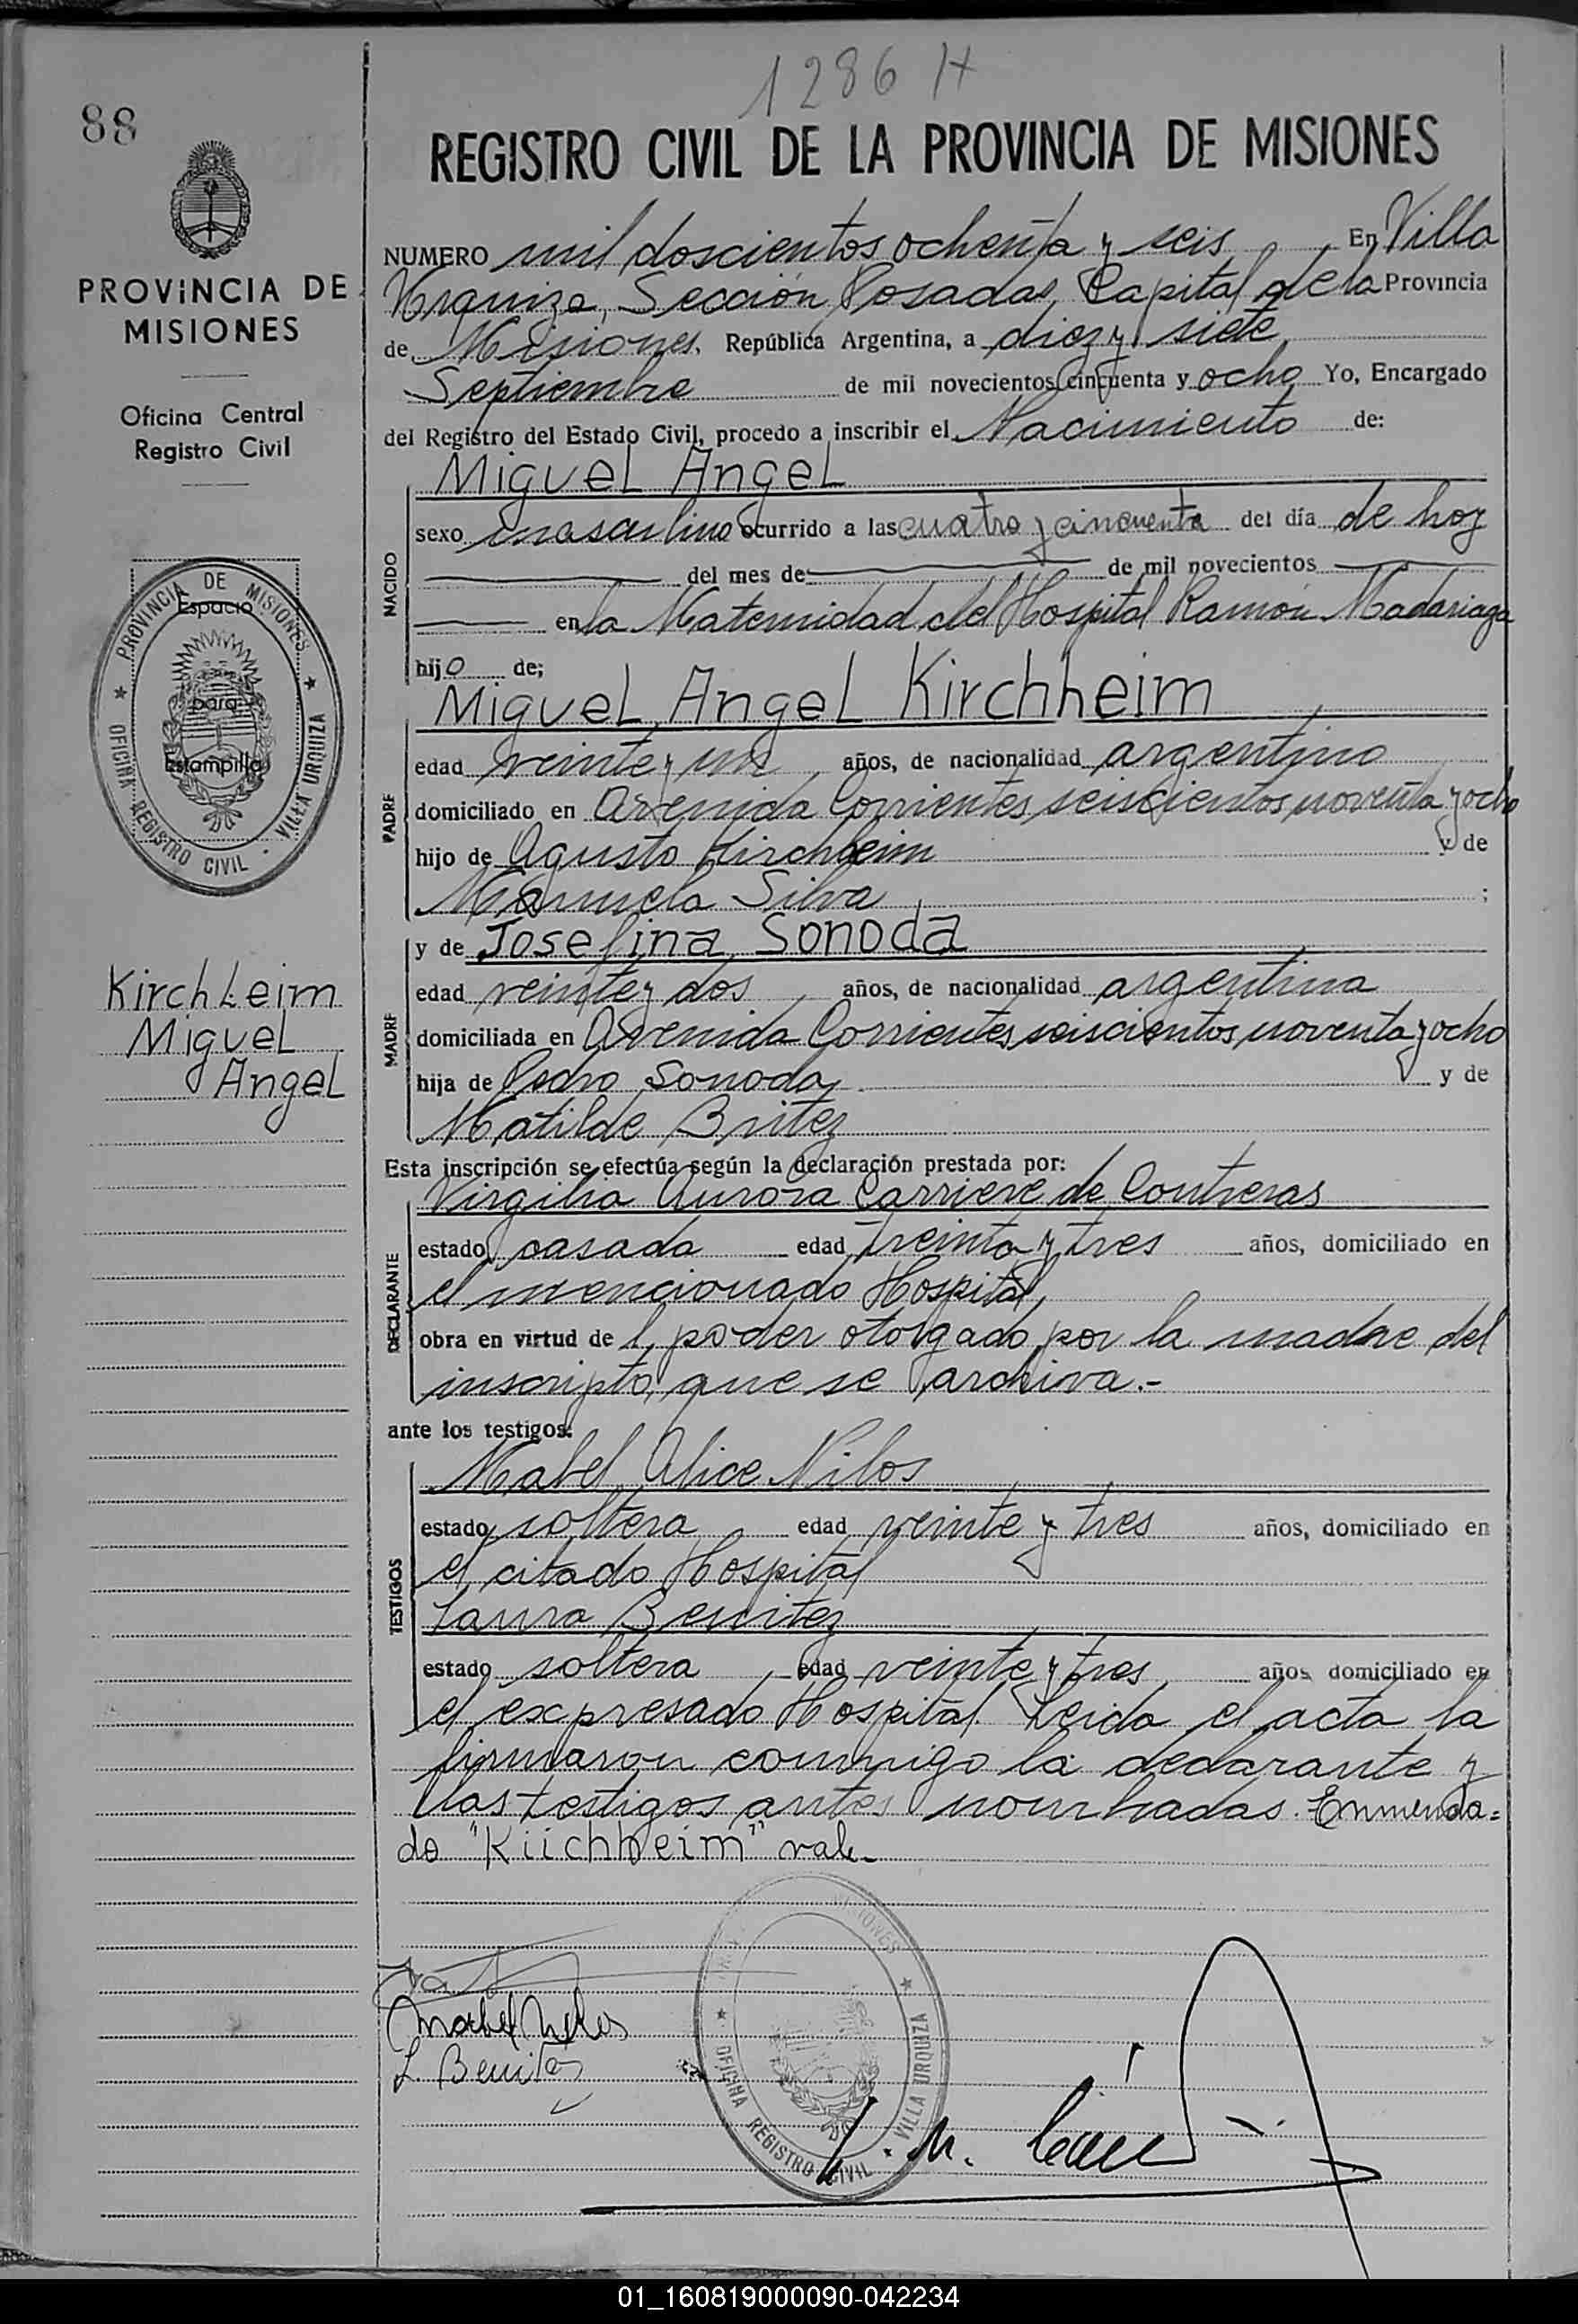 1286 H
88
REGISTRO CIVIL DE LA PROVINCIA DE MISIONES
PROVINCIA DE
MISIONES
Oficina Central
Registro Civil
NUMERO mil doscientos ochenta y seis En Villa
Urquiza, Sección Posadas, Capital de la Provincia
de Misiones, República Argentina, a diez y siete
Septiembre de mil novecientos cincuenta y ocho Yo, Encargado
del Registro del Estado Civil, procedo a inscribir el Nacimiento de:
Miguel Angel
NACIDO
sexo masculino ocurrido a las cuatro y cincuenta del día de hoy
del mes de de mil novecientos
en la Maternidad del Hospital Ramón Madariaga
hijo de;
PADRE
Miguel Angel Kirchheim
edad veinte y un años, de nacionalidad argentino
domiciliado en Avenida Corrientes seiscientos noventa y ocho
hijo de Agusto Kirchheim y de
Manuela Silva ;
MADRE
y de Josefina Sonoda
edad veinte y dos años, de nacionalidad argentina
domiciliada en Avenida Corrientes seiscientos noventa y ocho
hija de Pedro Sonoda y de
Matilde Britez
Esta inscripción se efectúa según la declaración prestada por:
DECLARANTE
Virgilia Aurora Carriere de Contreras
estado casada edad treinta y tres años, domiciliado en
el mencionado Hospital
obra en virtud de l poder otorgado por la madre del
inscripto, que se archiva.-
ante los testigos:
TESTIGOS
Mabel Alice Nilos
estado soltera edad veinte y tres años, domiciliado en
el citado Hospital
Laura Benitez
estado soltera edad veinte y tres años domiciliado en
el expresado Hospital. Leida el acta la
firmaron conmigo la declarante y
las testigos antes nombradas. Enmenda=
do "Kiichheim" vale-
PROVINCIA DE MISIONES
OFICINA REGISTRO CIVIL · VILLA URQUIZA
Espacio
para
Estampilla
Kirchheim
Miguel
Angel
Mabel Nilos
L. Benitez
MISIONES
OFICINA REGISTRO CIVIL · VILLA URQUIZA
01_160819000090-042234